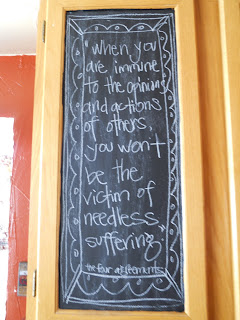 "When you
are immune
to the opinions
and actions
of others,
you won't
be the
victim of
needless
suffering."
the four agreements